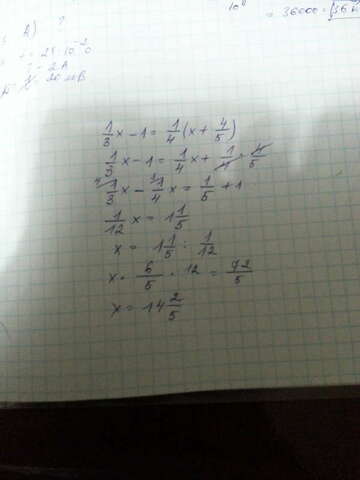 10⁴
= 36000 =
2) ?
2 A
20 мВ
1/3 x - 1 = 1/4 (x + 4/5)
1/3 x - 1 = 1/4 x + 1/4 · 4/5
4/ 1/3 x - 3/ 1/4 x = 1/5 + 1
1/12 x = 1 1/5
x = 1 1/5 : 1/12
x · 6/5 · 12 = 72/5
x = 14 2/5